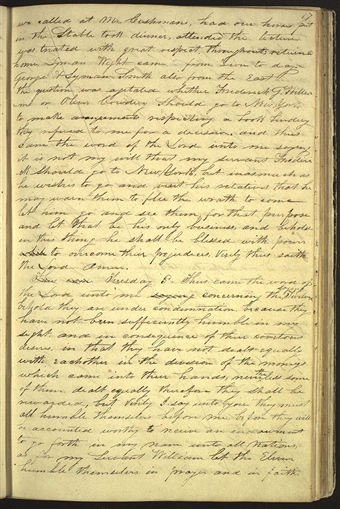 we called at Mr. Cushmans, had our horses put
in the Stable took dinner, attended the lecture
was treated with great respect throughout; return
home Lyman Wight came from Zion to day
George & Lyman Smith also from the East
the question was agitated whether Frederick G. Williams
or Oliver Cowdery should go to New York
to make arangements respecting a book bindery
they refered to me for a decision, and thus
came the word of the Lord unto me saying
it is not my will that my servant Frederick
should go to New York, but inasmuch as
he wishes to go and visit his relatives that he
may warn them to flee the wrath to come
let him go and see them, for that purpose
and let that be his only business, and behold
in this thing he shall be blessed with power
to overcome their prejudices, Verily thus saith
the Lord Amen.
Thursday 5. Thus came the word of
the Lord unto me concerning the Twelve
behold they are under condemnation, because they
have not been sufficiently humble in my
sight, and in consequence of their covetous
desires, in that they have not dealt equally
with each other in the division of the moneys
which came into their hands, nevertheless some
of them dealt equally therefore they shall be
rewarded, but Verily I say unto you they must
all humble themselves before me, before they will
be accounted worthy to receive an endowment
to go forth in my name unto all Nations,
as for my Servant William let the Eleven
humble themselves in prayer and in faith